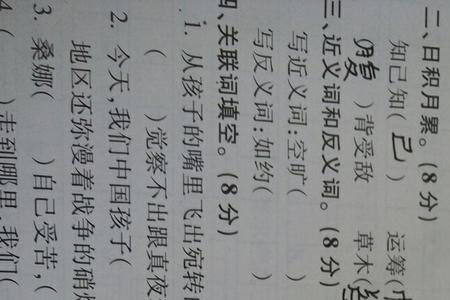 二、日积月累。(8分)
知己知(己) 运筹(
(腹)背受敌 草木(
三、近义词和反义词。(8分)
写近义词:空旷( )
写反义词:如约( )
四、关联词填空。(8分)
1. 从孩子的嘴里飞出宛转
( )觉察不出跟真夜
2. 今天,我们中国孩子(
地区还弥漫着战争的硝
3. 桑娜( )自己受苦,(
4. ( )走到哪里,我们(